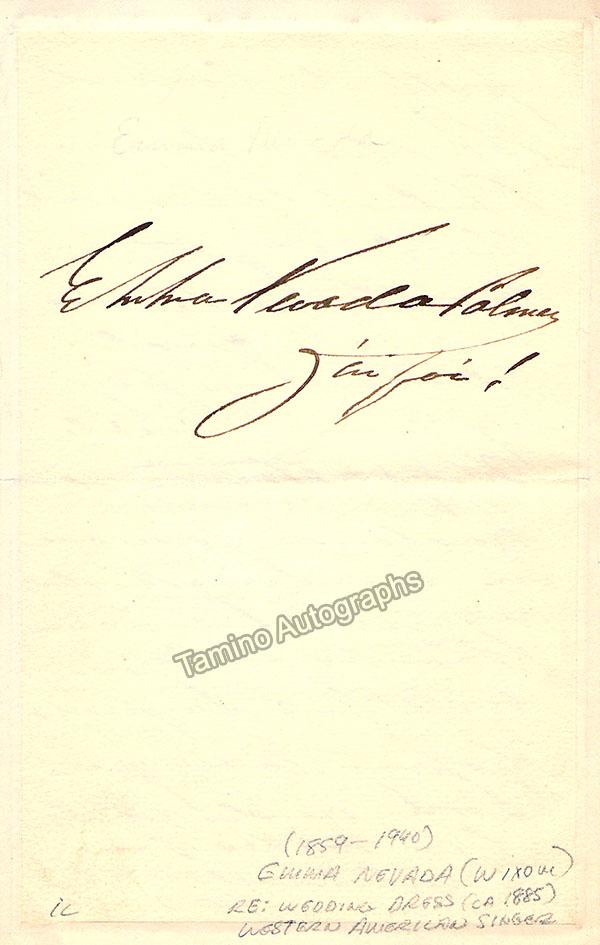 Emma Nevada Palmer
J'ai foi!
Tamino Autographs
(1859-1940)
EMMA NEVADA (WIXOM)
RE: WEDDING DRESS (CA 1885)
WESTERN AMERICAN SINGER
ic